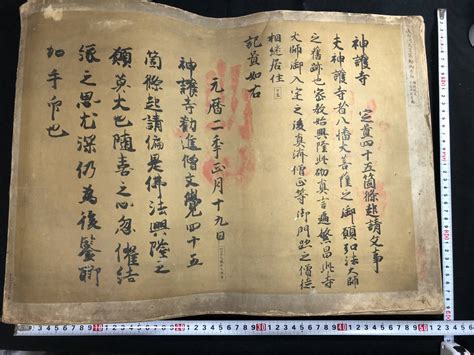 神護寺 定置四十五箇條起請文事
夫神護寺者八幡大菩薩之御願弘法大師
之舊跡也密教始興隆此砌真言遍繁昌此寺
大師御入定之後真濟僧正等御門跡之僧徒
相継居住
記置如右
元暦二季正月十九日
神護寺勧進僧文覺四十五
箇條起請偏是佛法興隆之
願莫大也随喜之心忽催結
縁之思尤深仍為後鑒聊
加手印也